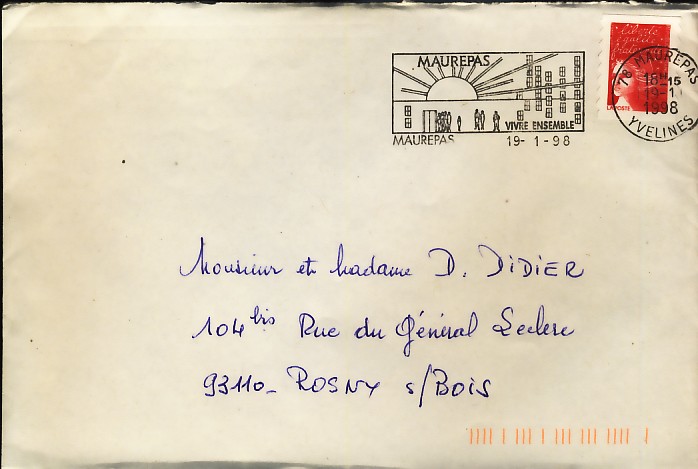 liberté
égalité
MAUREPAS
VIVRE ENSEMBLE
MAUREPAS 19-1-98
LA POSTE
78 MAUREPAS
18H15
19-1
1998
YVELINES
Monsieur et Madame D. DIDIER
104 bis Rue du Général Leclerc
93110_ ROSNY s/Bois